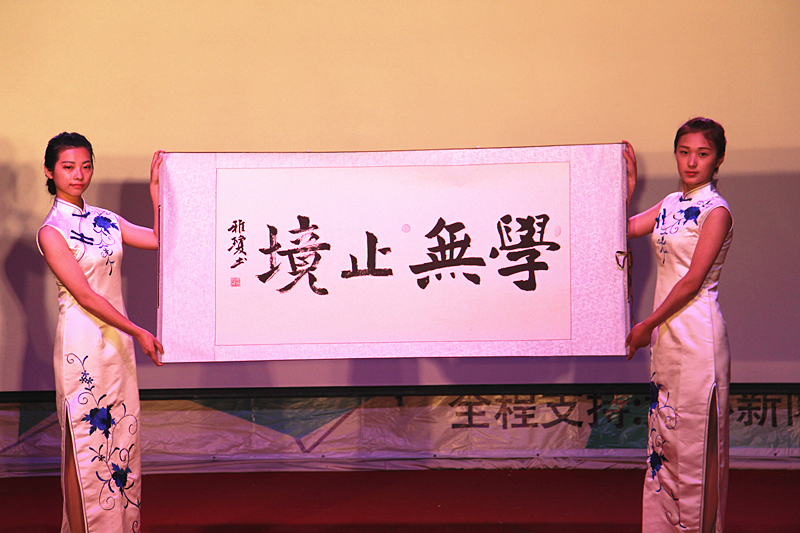 學無止境
雅賢書
全程支持:
新